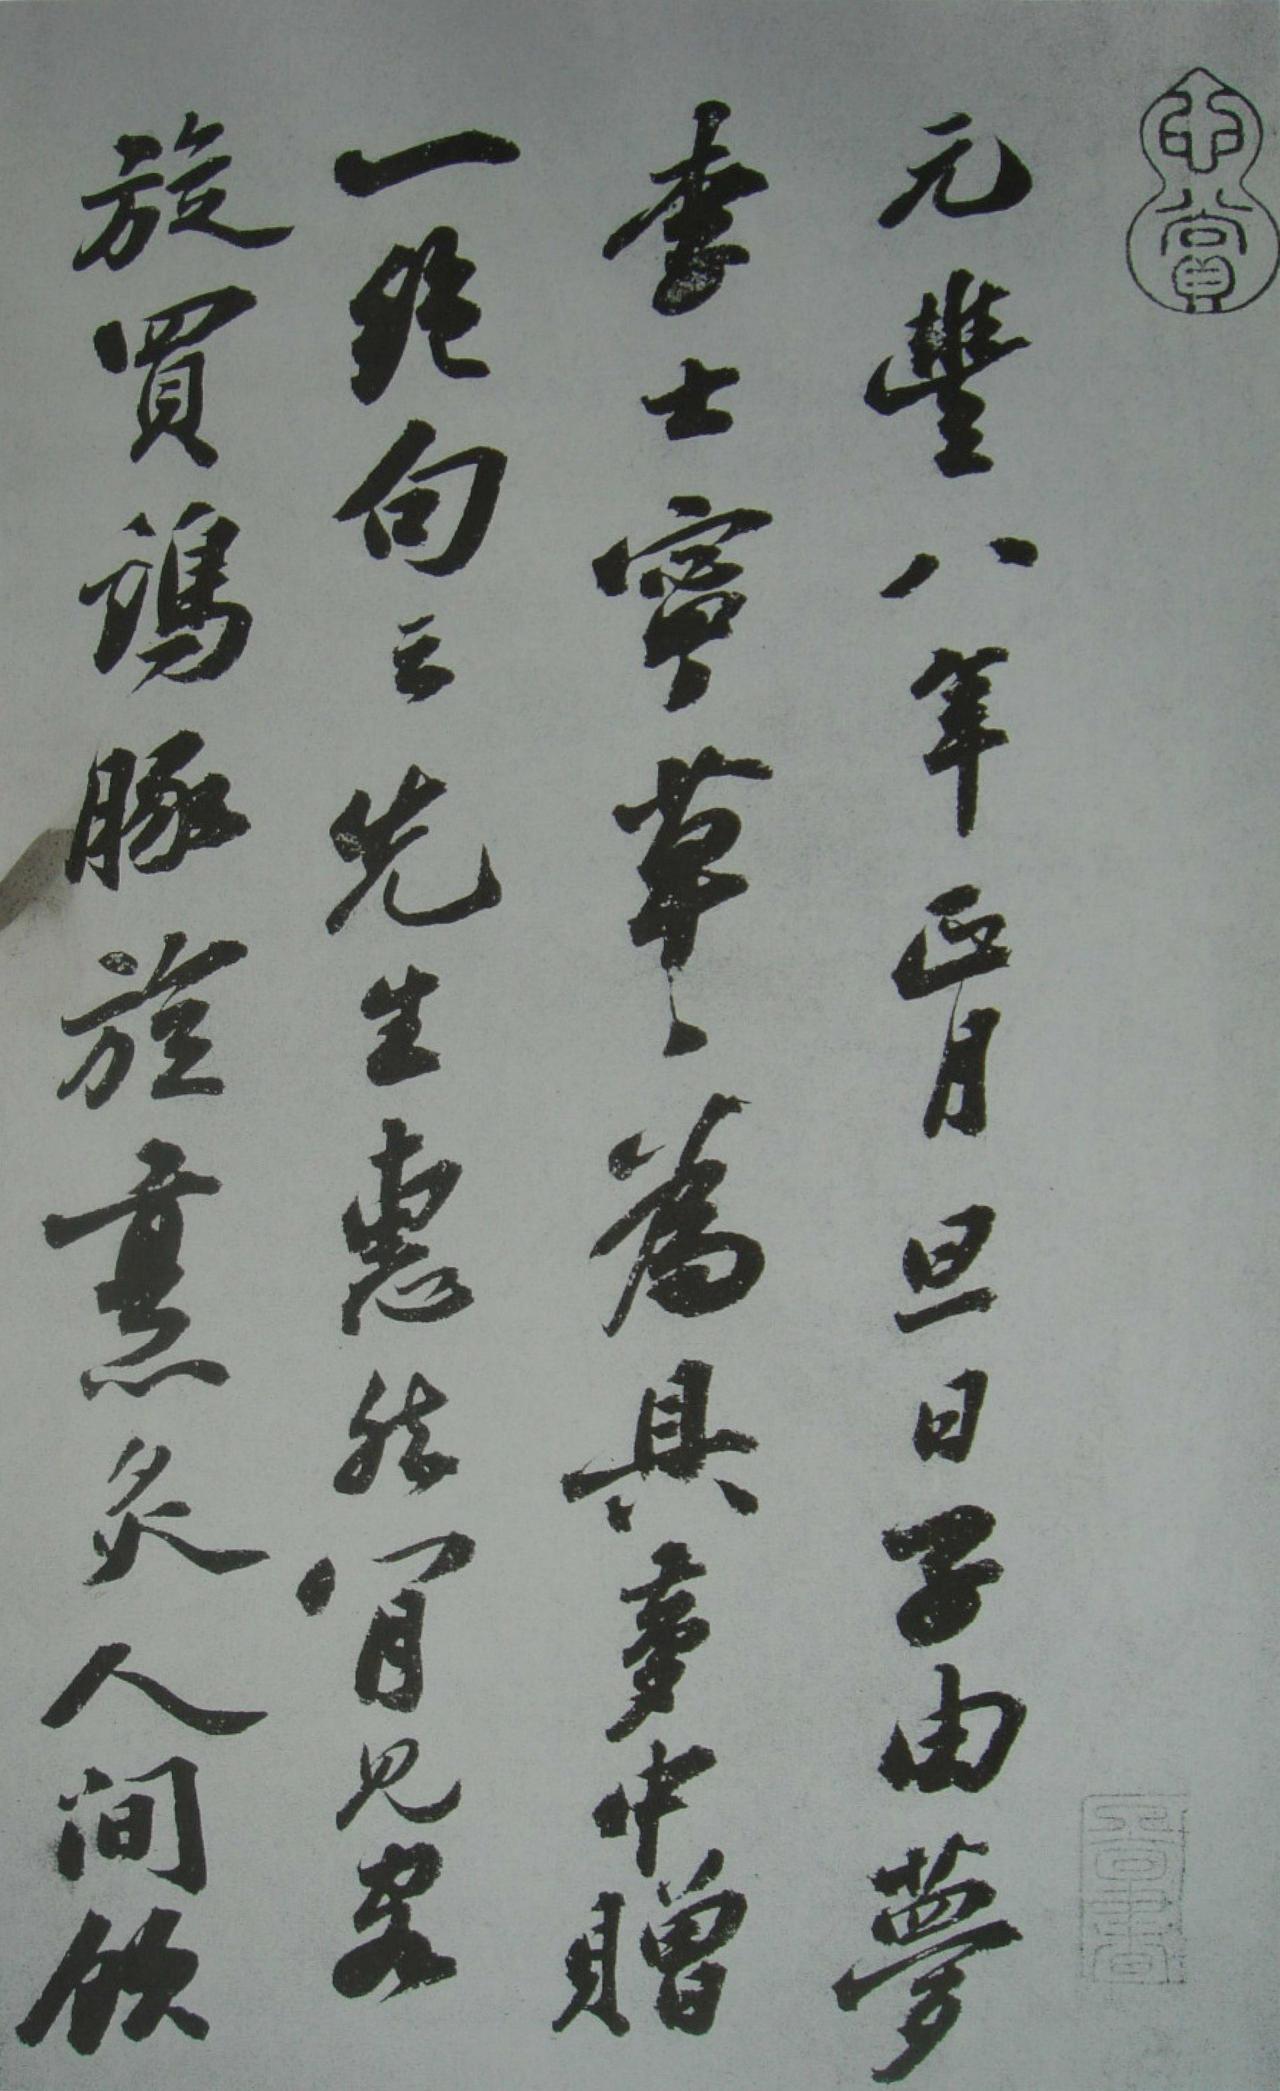 元豐八年正月旦日子由夢
李士寧草〻為具夢中贈
一絕句云先生惠然肯見客
旋買鷄豚旋烹炙人間飲